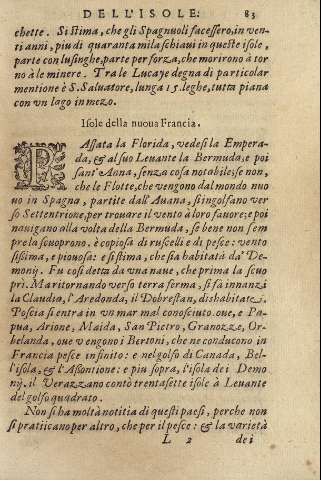 DELL'ISOLE. 83
chette. Si stima, che gli Spagnuoli facessero, in ven-
ti anni, piu di quaranta mila schiaui in queste isole,
parte con lusinghe, parte per forza, che morirono à tor
no à le minere. Tra le Lucaye degna di particolar
mentione è S. Saluatore, lunga 15. leghe, tutta piana
con vn lago in mezo.
Isole della nuoua Francia.
PAssata la Florida, vedesi la Empera-
da, & al suo Leuante la Bermuda, e poi
sant'Anna, senza cosa notabile, se non,
che le Flotte, che vengono dal mondo nuo
uo in Spagna, partite dall'Auana, s'ingolfano ver
so Settentrione, per trouare il vento à loro fauore; e poi
nauigano alla volta della Bermuda, se bene non sem
pre la scuoprono. è copiosa di ruscelli e di pesce: vento
sissima, e piouosa: e si stima, che sia habitata da' De-
monij. Fu così detta da vna naue, che prima la scuo
prì. Mà ritornando verso terra ferma, si fà innanzi
la Claudia, l'Aredonda, il Dobrestan, dishabitate.
Poscia si entra in vn mar mal conosciuto. oue, e Pa-
pua, Arione, Maida, San Pietro, Granozze, Or-
belanda, oue vengono i Bertoni, che ne conducono in
Francia pesce infinito: e nel golfo di Canada, Bel-
l'isola, & l'Assontione: e piu sopra, l'isola dei Demo
nij. il Verazzano contò trentasette isole à Leuante
del golfo quadrato.
Non si ha molta notitia di questi paesi, perche non
si pratticano per altro, che per il pesce: & la varietà
L 2 dei